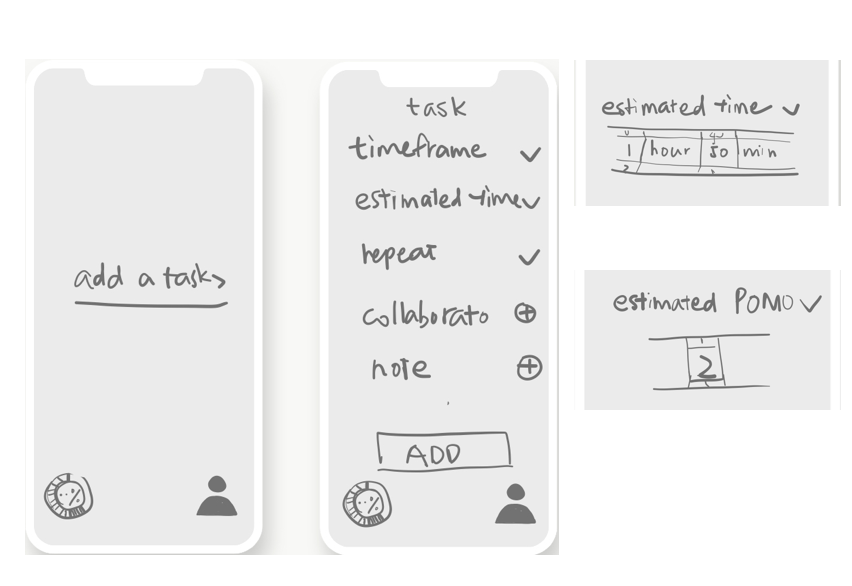 add a task>
task
timeframe
estimated time
repeat
collaborato
note
ADD
estimated time
1 hour 50 min
2
estimated POMO
2